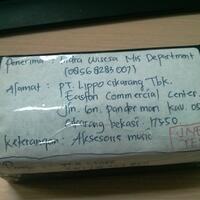 Penerima : Indra Wisesa Mis Department
(08568283007)
Alamat : PT. Lippo Cikarang Tbk.
Easton Commercial Center
Jln. Gn. Panderman Kav. 05
Cikarang Bekasi 17550
Keterangan : Aksesoris music